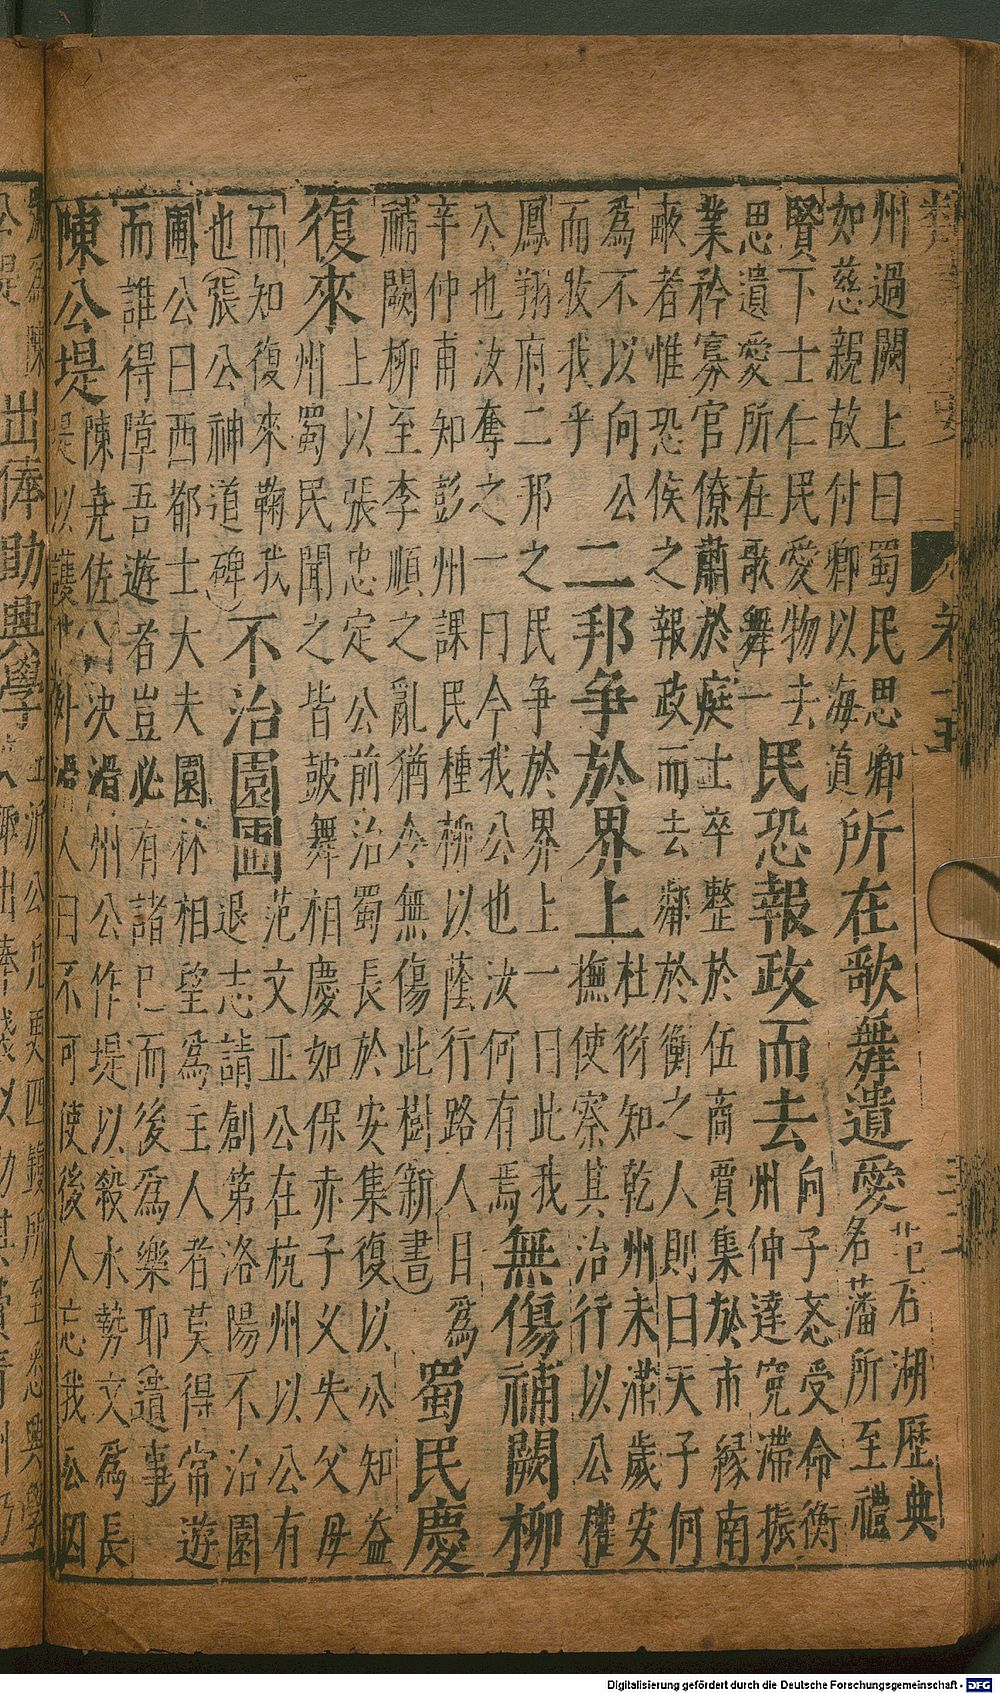 州過闕上曰蜀民思卿
如慈親故付卿以海道
所在歌舞遺愛
范石湖歷典
名藩所至禮
賢下士仁民愛物去
思遺愛所在歌舞一
民恐報政而去
向子忞受命衡
州仲達寃滯振
業矜寡官僚肅於庭士卒整於伍商賈集於市緣南
畝者惟恐侯之報政而去鄰於衡之人則曰天子何
為不以向公
而牧我乎
二邦争於界上
杜衍知乾州未滿歲安
撫使察其治行以公權
鳳翔府二邦之民争於界上一曰此我
公也汝奪之一曰今我公也汝何有焉
無傷補闕柳
辛仲甫知彭州課民種柳以蔭行路人目為
補闕柳至李順之亂猶今無傷此樹新書
蜀民慶
復來
上以張忠定公前治蜀長於安集復以公知益
州蜀民聞之皆鼓舞相慶如保赤子父失父母
而知復來鞠我
也張公神道碑
不治園圃
范文正公在杭州以公有
退志請創第洛陽不治園
圃公曰西都士大夫園林相望為主人者莫得常遊
而誰得障吾遊者豈必有諸已而後為樂耶遺事
陳公堤
陳堯佐 决滑州公作堤以殺水勢又為長
堤以護 外滑人曰不可使後人忘我公因
出俸助興學
Digitalisierung gefördert durch die Deutsche Forschungsgemeinschaft - DFG